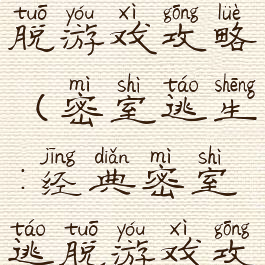 tuō yóu xì gōng lüè
脱游戏攻略
mì shì táo shēng
(密室逃生
jīng diǎn mì shì
:经典密室
táo tuō yóu xì gōng
逃脱游戏攻